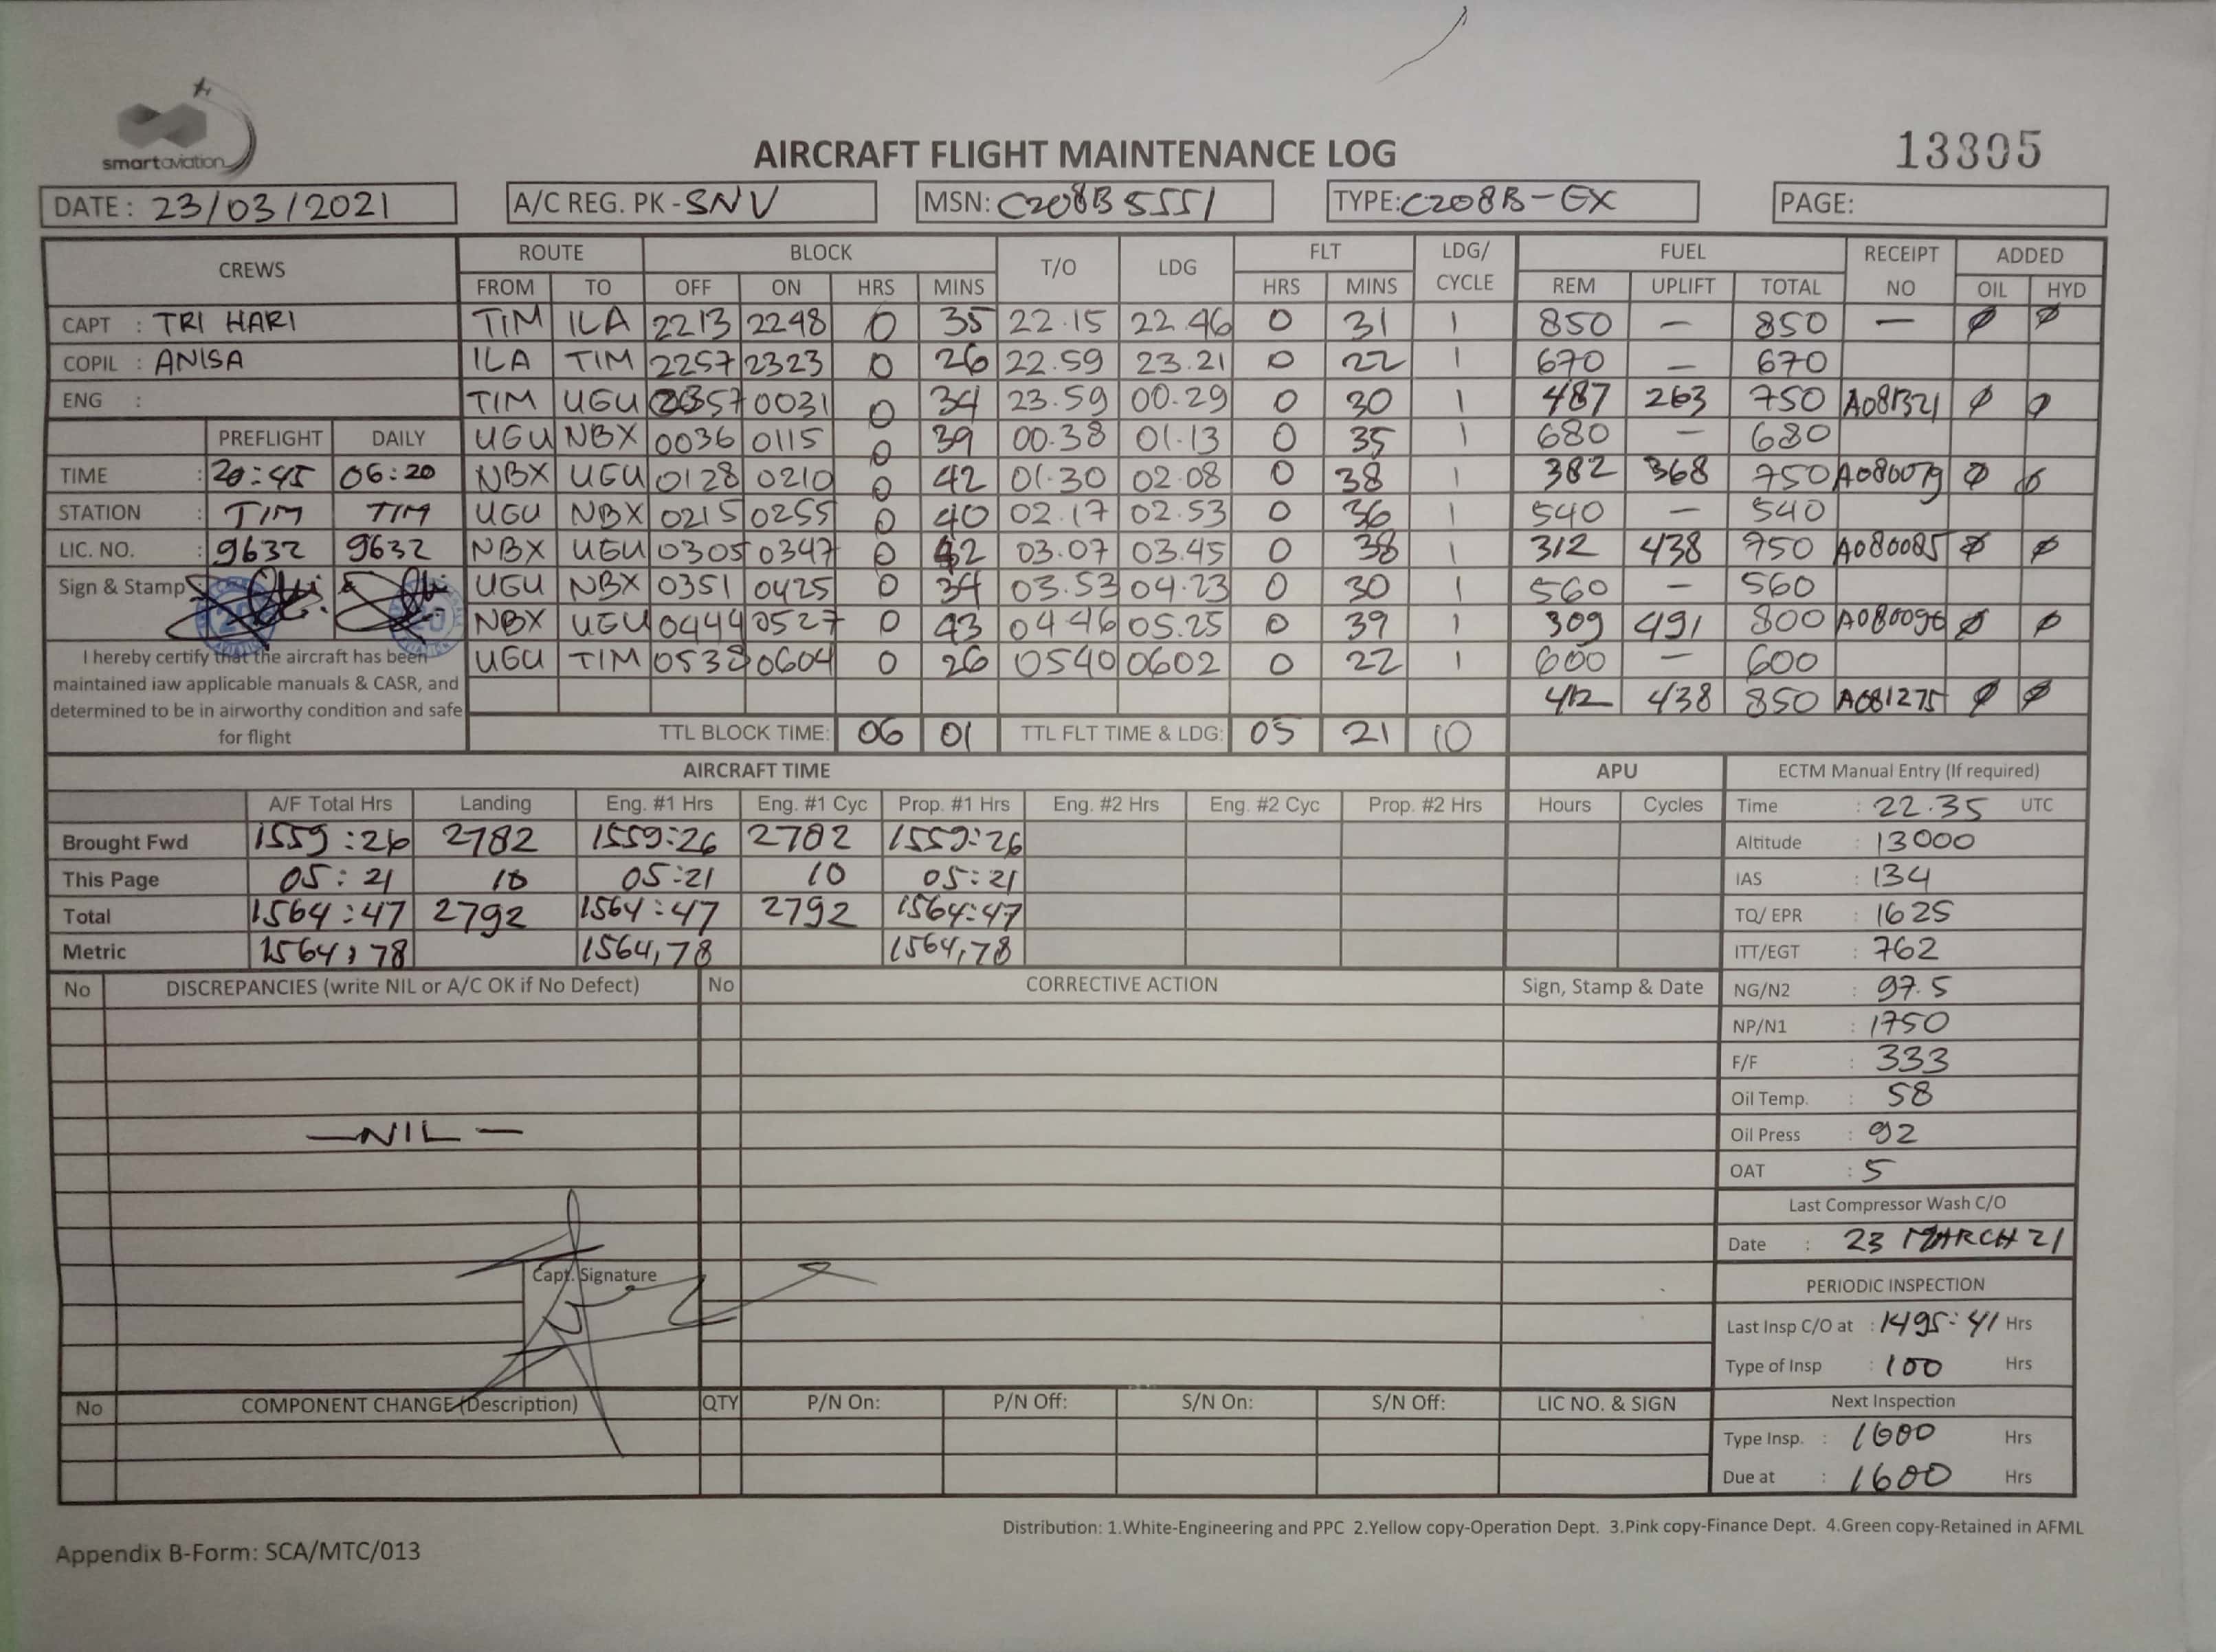 smartaviation
AIRCRAFT FLIGHT MAINTENANCE LOG
13305
DATE: 23/03/2021 A/C REG. PK-SNV MSN: C208B5551 TYPE: C208B-EX PAGE:
CREWS ROUTE BLOCK T/O LDG FLT LDG/CYCLE FUEL RECEIPT NO ADDED
FROM TO OFF ON HRS MINS HRS MINS REM UPLIFT TOTAL OIL HYD
CAPT : TRI HARI TIM ILA 2213 2248 0 35 22.15 22.46 0 31 1 850 — 850 — Ø Ø
COPIL : ANISA ILA TIM 2257 2323 0 26 22.59 23.21 0 22 1 670 — 670
ENG : TIM UGU 2357 0031 0 34 23.59 00.29 0 30 1 487 263 750 A081321 Ø Ø
PREFLIGHT DAILY UGU NBX 0036 0115 0 39 00.38 01.13 0 35 1 680 — 680
TIME : 20:45 06:20 NBX UGU 0128 0210 0 42 01.30 02.08 0 38 1 382 368 750 A080079 Ø Ø
STATION : TIM TIM UGU NBX 0215 0255 0 40 02.17 02.53 0 36 1 540 — 540
LIC. NO. : 9632 9632 NBX UGU 0305 0347 0 42 03.07 03.45 0 38 1 312 438 750 A080085 Ø Ø
Sign & Stamp : UGU NBX 0351 0425 0 34 03.53 04.23 0 30 1 560 — 560
NBX UGU 0444 0527 0 43 04.46 05.25 0 39 1 309 491 800 A080096 Ø Ø
UGU TIM 0538 0604 0 26 0540 0602 0 22 1 600 — 600
412 438 850 A081275 Ø Ø
I hereby certify that the aircraft has been
maintained iaw applicable manuals & CASR, and
determined to be in airworthy condition and safe
for flight
TTL BLOCK TIME: 06 01 TTL FLT TIME & LDG: 05 21 10
AIRCRAFT TIME APU ECTM Manual Entry (If required)
A/F Total Hrs Landing Eng. #1 Hrs Eng. #1 Cyc Prop. #1 Hrs Eng. #2 Hrs Eng. #2 Cyc Prop. #2 Hrs Hours Cycles Time : 22.35 UTC
Brought Fwd 1559:26 2782 1559:26 2782 1559:26 Altitude : 13000
This Page 05:21 10 05:21 10 05:21 IAS : 134
Total 1564:47 2792 1564:47 2792 1564:47 TQ/ EPR : 1625
Metric 1564,78 1564,78 1564,78 ITT/EGT : 762
No DISCREPANCIES (write NIL or A/C OK if No Defect) No CORRECTIVE ACTION Sign, Stamp & Date NG/N2 : 97.5
NP/N1 : 1750
F/F : 333
Oil Temp. : 58
—NIL— Oil Press : 92
OAT : 5
Last Compressor Wash C/O
Date : 23 MARCH 21
Capt. Signature
PERIODIC INSPECTION
Last Insp C/O at : 1495:41 Hrs
Type of Insp : 100 Hrs
No COMPONENT CHANGE (Description) QTY P/N On: P/N Off: S/N On: S/N Off: LIC NO. & SIGN Next Inspection
Type Insp. : 1600 Hrs
Due at : 1600 Hrs
Distribution: 1.White-Engineering and PPC 2.Yellow copy-Operation Dept. 3.Pink copy-Finance Dept. 4.Green copy-Retained in AFML
Appendix B-Form: SCA/MTC/013